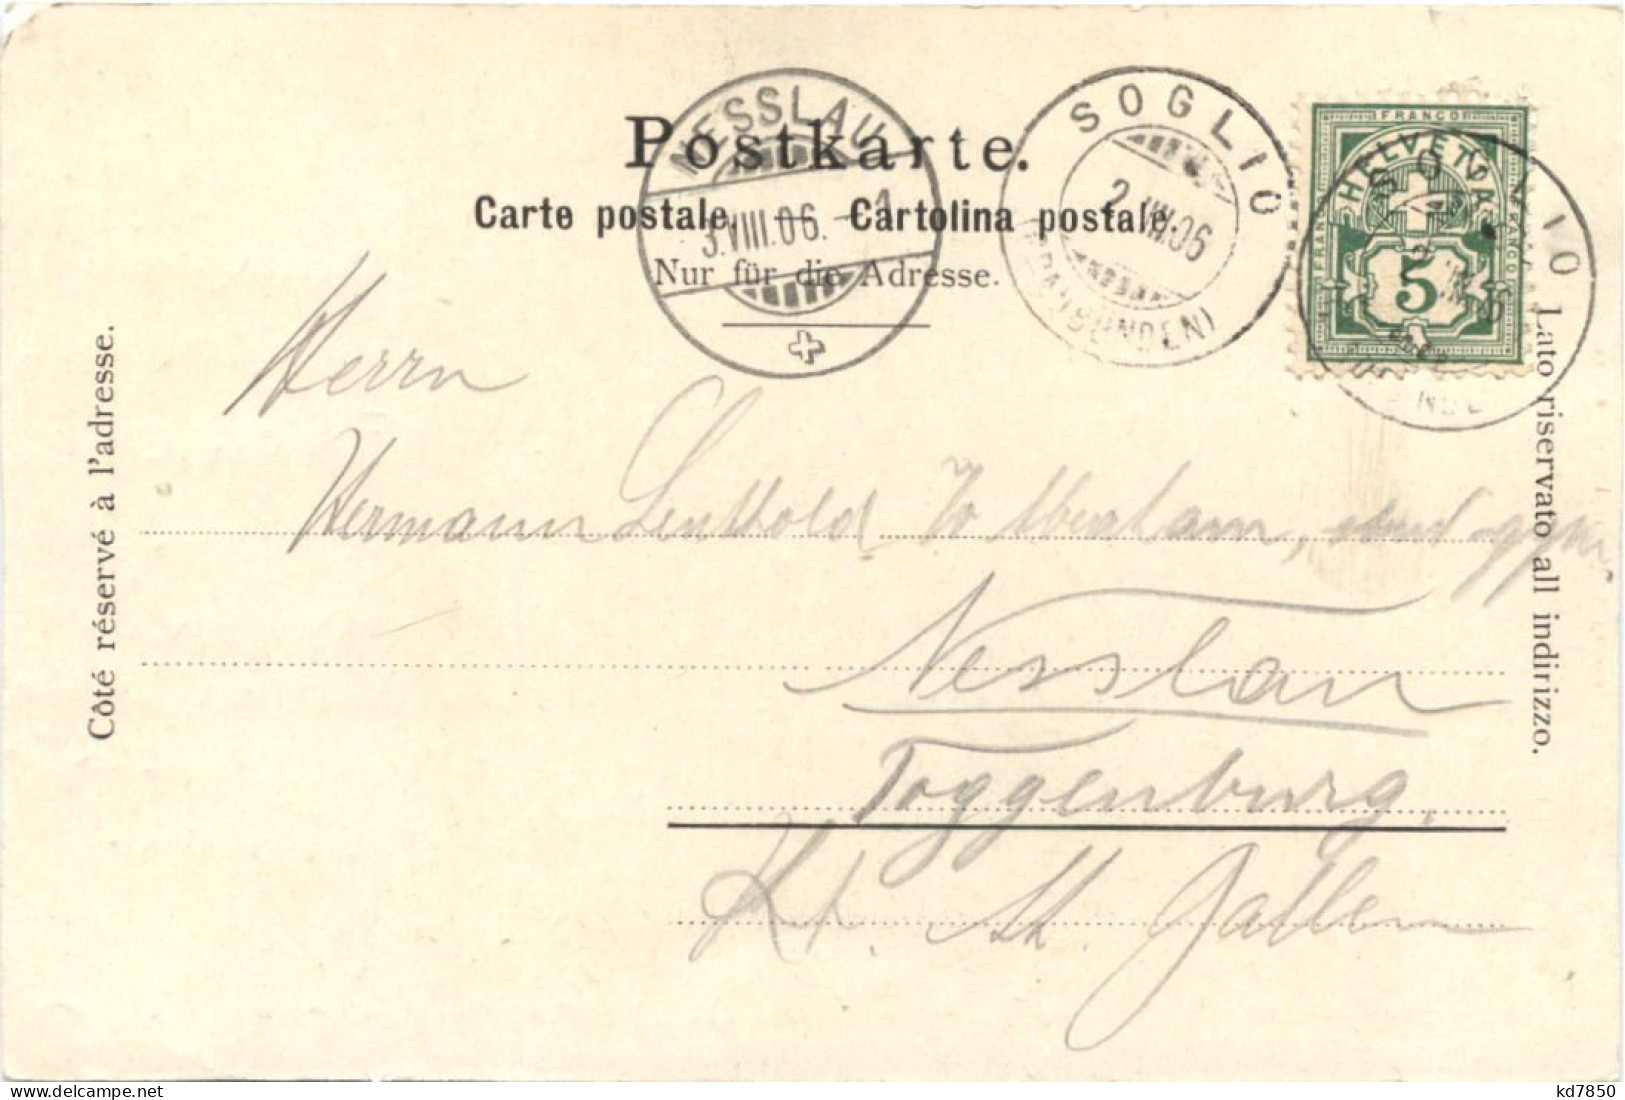 Postkarte.
Carte postale. — Cartolina postale.
Nur für die Adresse.
NESSLAU
3.VIII.06. - 1
SOGLIO
2.VIII.06
(GRAUBÜNDEN)
FRANCO
HELVETIA
FRANCO
FRANCO
5
SOGLIO
Côté réservé à l'adresse.
Lato riservato all indirizzo.
Herrn
Hermann Leuthold
Nesslau
Toggenburg,
Kt. St. Gallen
delcampe.net
kd7850